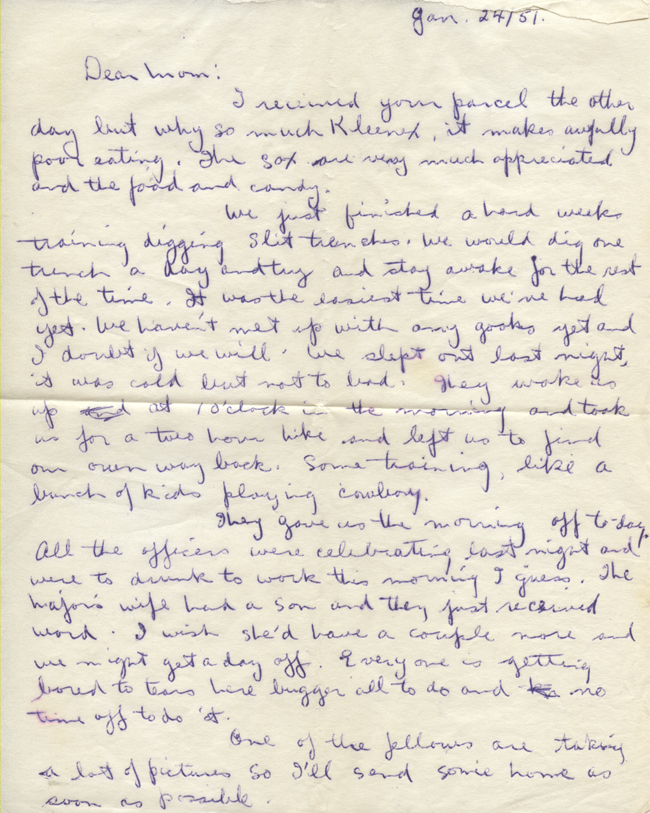 Jan. 24/51.
Dear Mom:
I received your parcel the other
day but why so much Kleenex, it makes awfully
poor eating. The sox are very much appreciated
and the food and candy.
We just finished a hard weeks
training digging slit trenches. We would dig one
trench a day and try and stay awake for the rest
of the time. It was the easiest time we've had
yet. We haven't met up with any gooks yet and
I doubt if we will. We slept out last night,
it was cold but not to bad. They woke us
up at 1 o'clock in the morning and took
us for a two hour hike and left us to find
our own way back. Some training, like a
bunch of kids playing cowboy.
They gave us the morning off to-day.
All the officers were celebrating last night and
were to drunk to work this morning I guess. The
majors wife had a son and they just received
word. I wish she'd have a couple more and
we might get a day off. Everyone is getting
bored to tears here bugger all to do and no
time off to do it.
One of the fellows are taking
a lot of pictures so I'll send some home as
soon as possible.